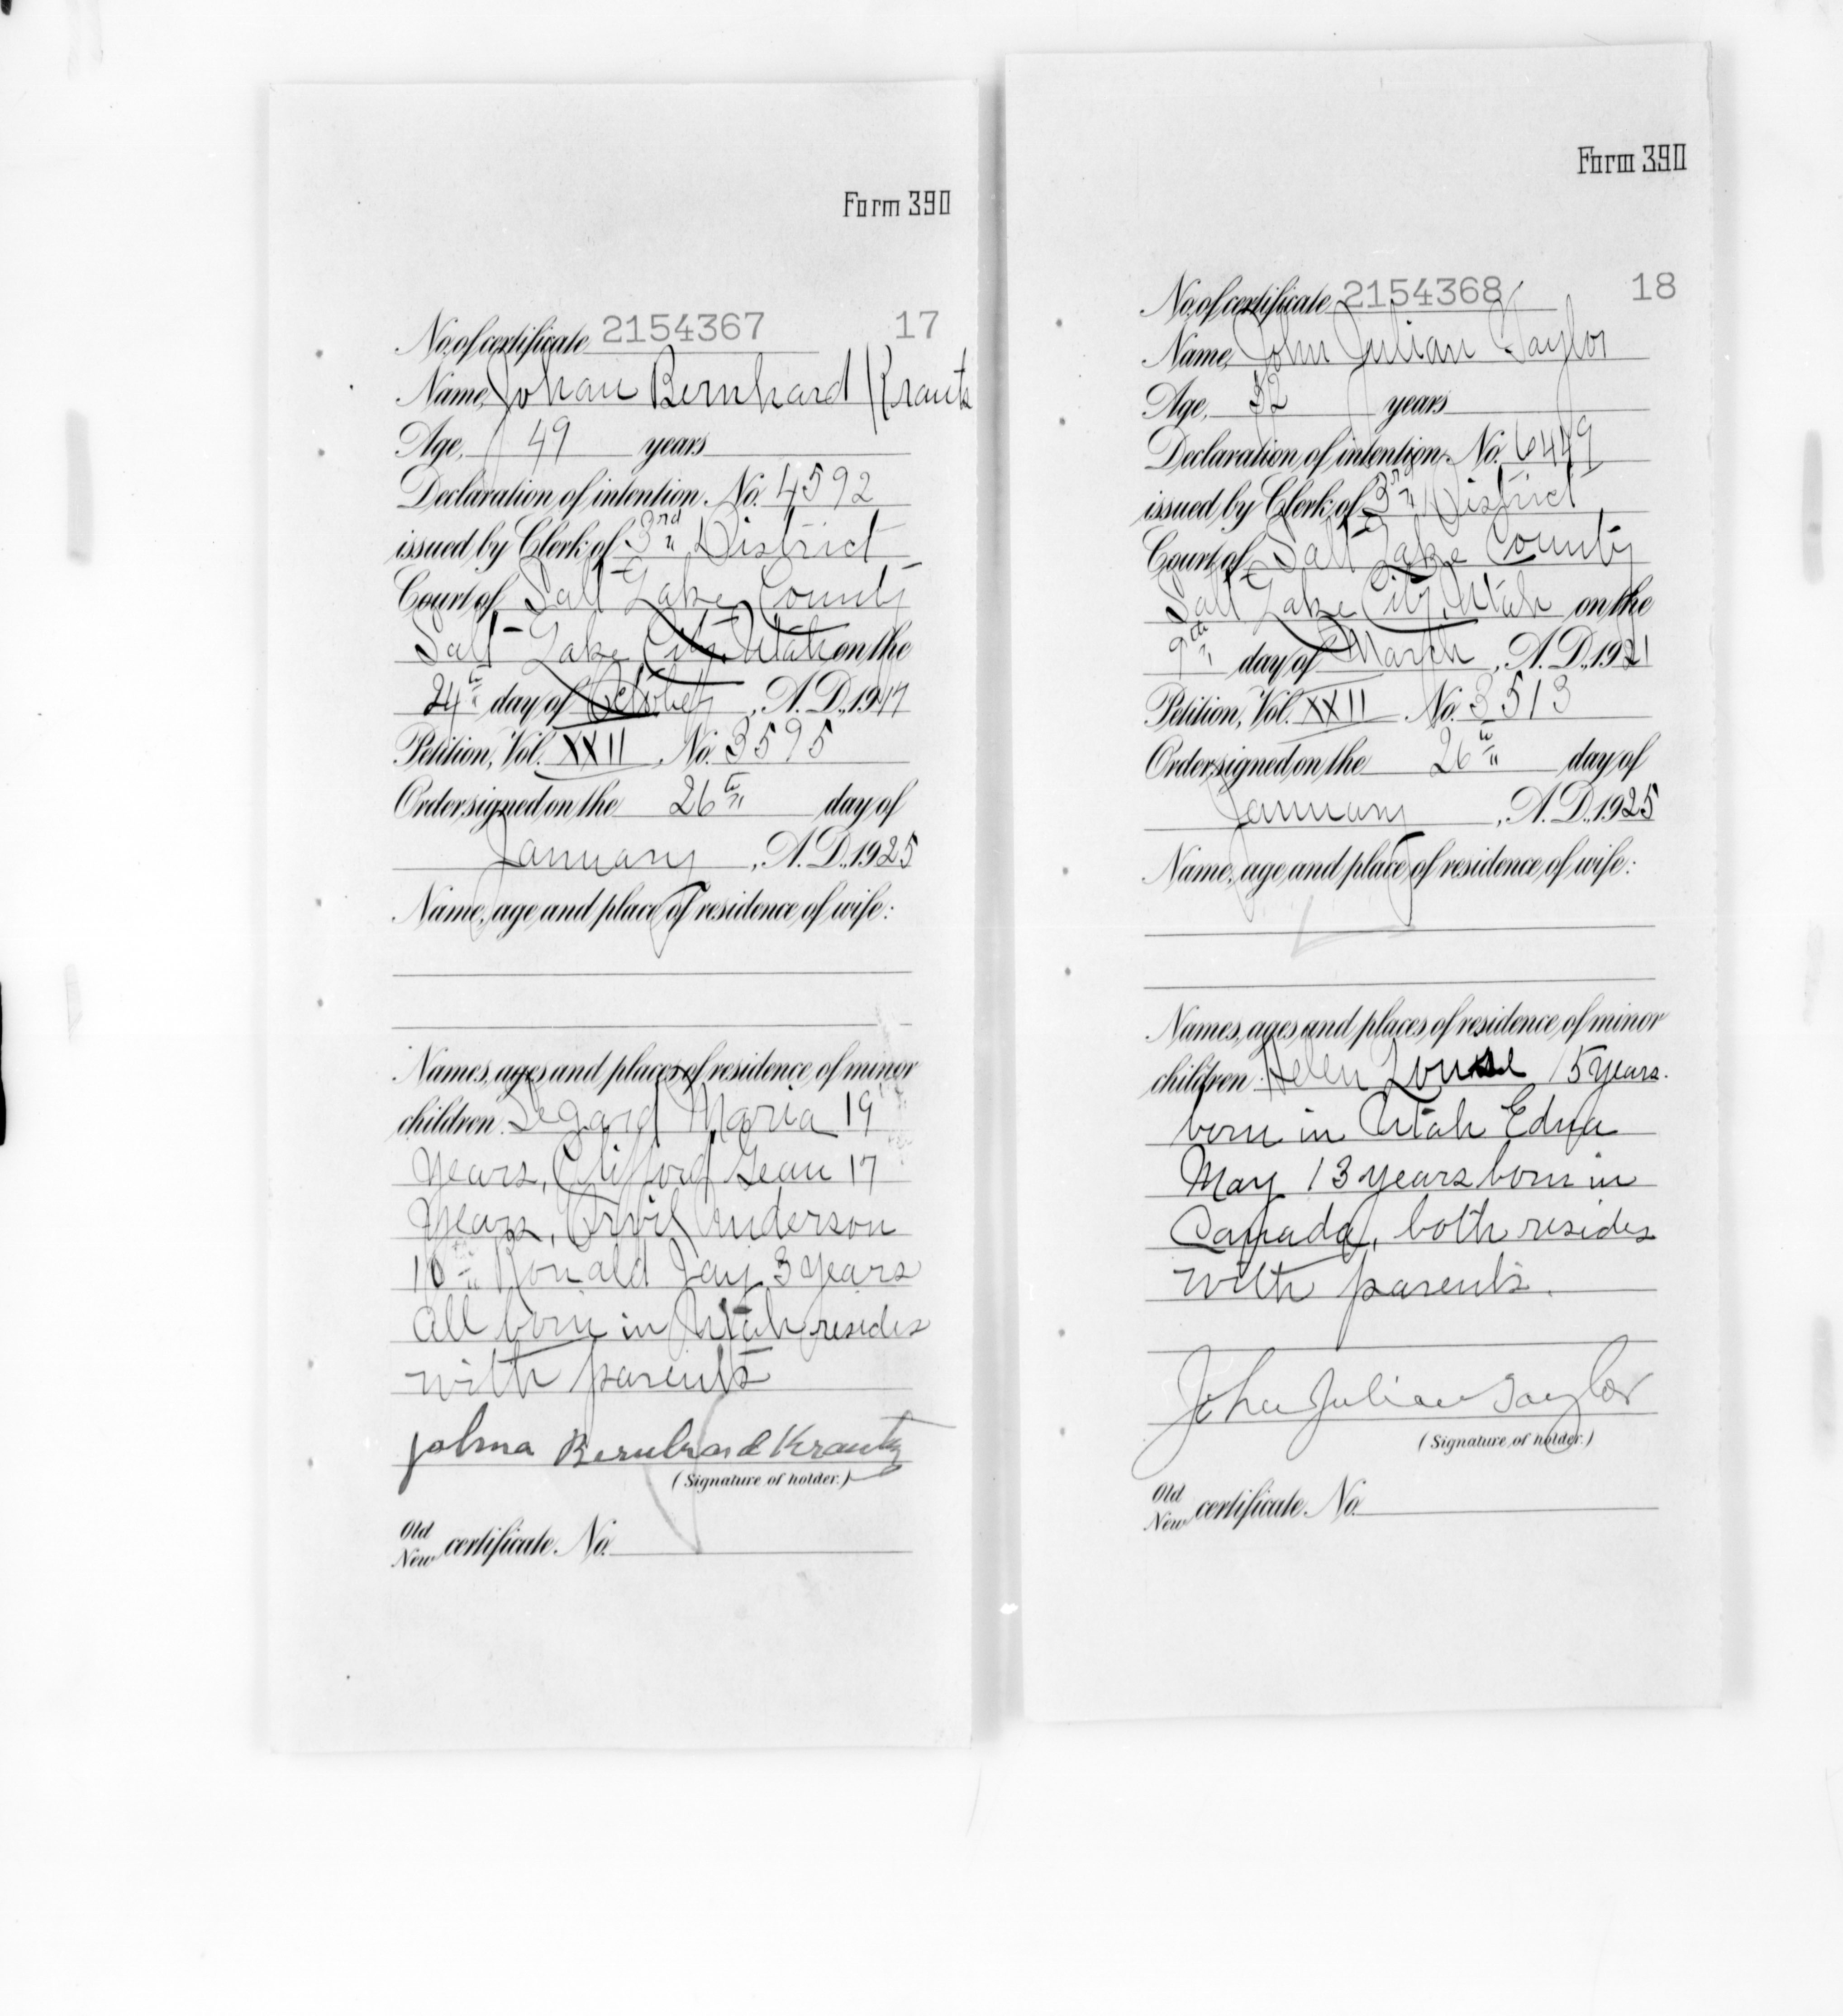 Form 390
No. of certificate 2154367 17
Name, Johan Bernhard Krantz
Age, 49 years
Declaration of intention No. 4592
issued by Clerk of 3rd District
Court of Salt Lake County
Salt Lake City, Utah on the
24th day of October, A. D., 1917
Petition, Vol. XXII, No. 3595
Order signed on the 26th day of
January, A. D., 1925
Name, age and place of residence of wife:
Names, ages and places of residence of minor
children Maria 19
Years, Clifford Gean 17
Years, Orvil Anderson
10 Ronald Jay 3 years
All born in Utah resides
with parents
Bernhard Krantz
(Signature of holder.)
Old
New certificate No.
Form 390
No. of certificate 2154368 18
Name, John Julian Taylor
Age, years
Declaration of intention No. 6449
issued by Clerk of 3rd District
Court of Salt Lake County
Salt Lake City, Utah on the
9th day of March, A. D., 1921
Petition, Vol. XXII No. 3513
Order signed on the 26th day of
January, A. D., 1925
Name, age and place of residence of wife:
Names, ages and places of residence of minor
children Helen Louise 15 years.
born in Utah Edna
May 13 years born in
Canada, both resides
with parents.
John Julian Taylor
(Signature of holder.)
Old
New certificate No.